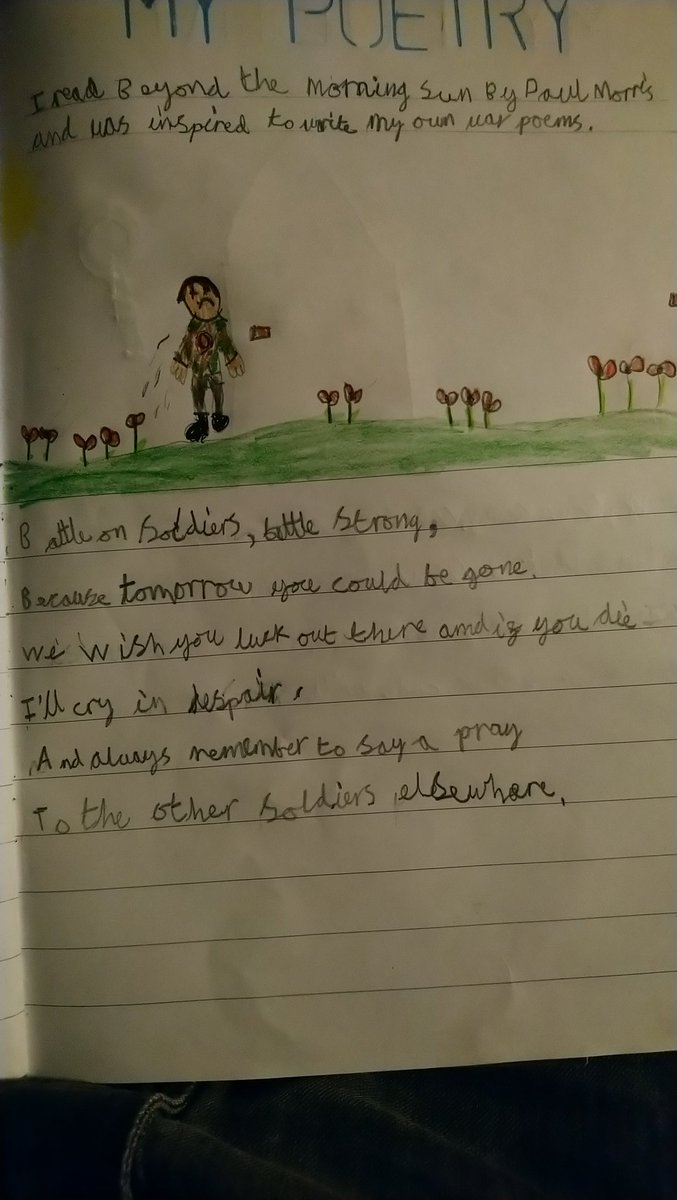 MY POETRY
I read Beyond the Morning Sun By Paul Morris
and was inspired to write my own war poems.
Battle on Soldiers, battle Strong,
Because tomorrow you could be gone.
We Wish you luck out there and if you die
I'll cry in despair.
And always remember to say a pray
To the other Soldiers elsewhare.